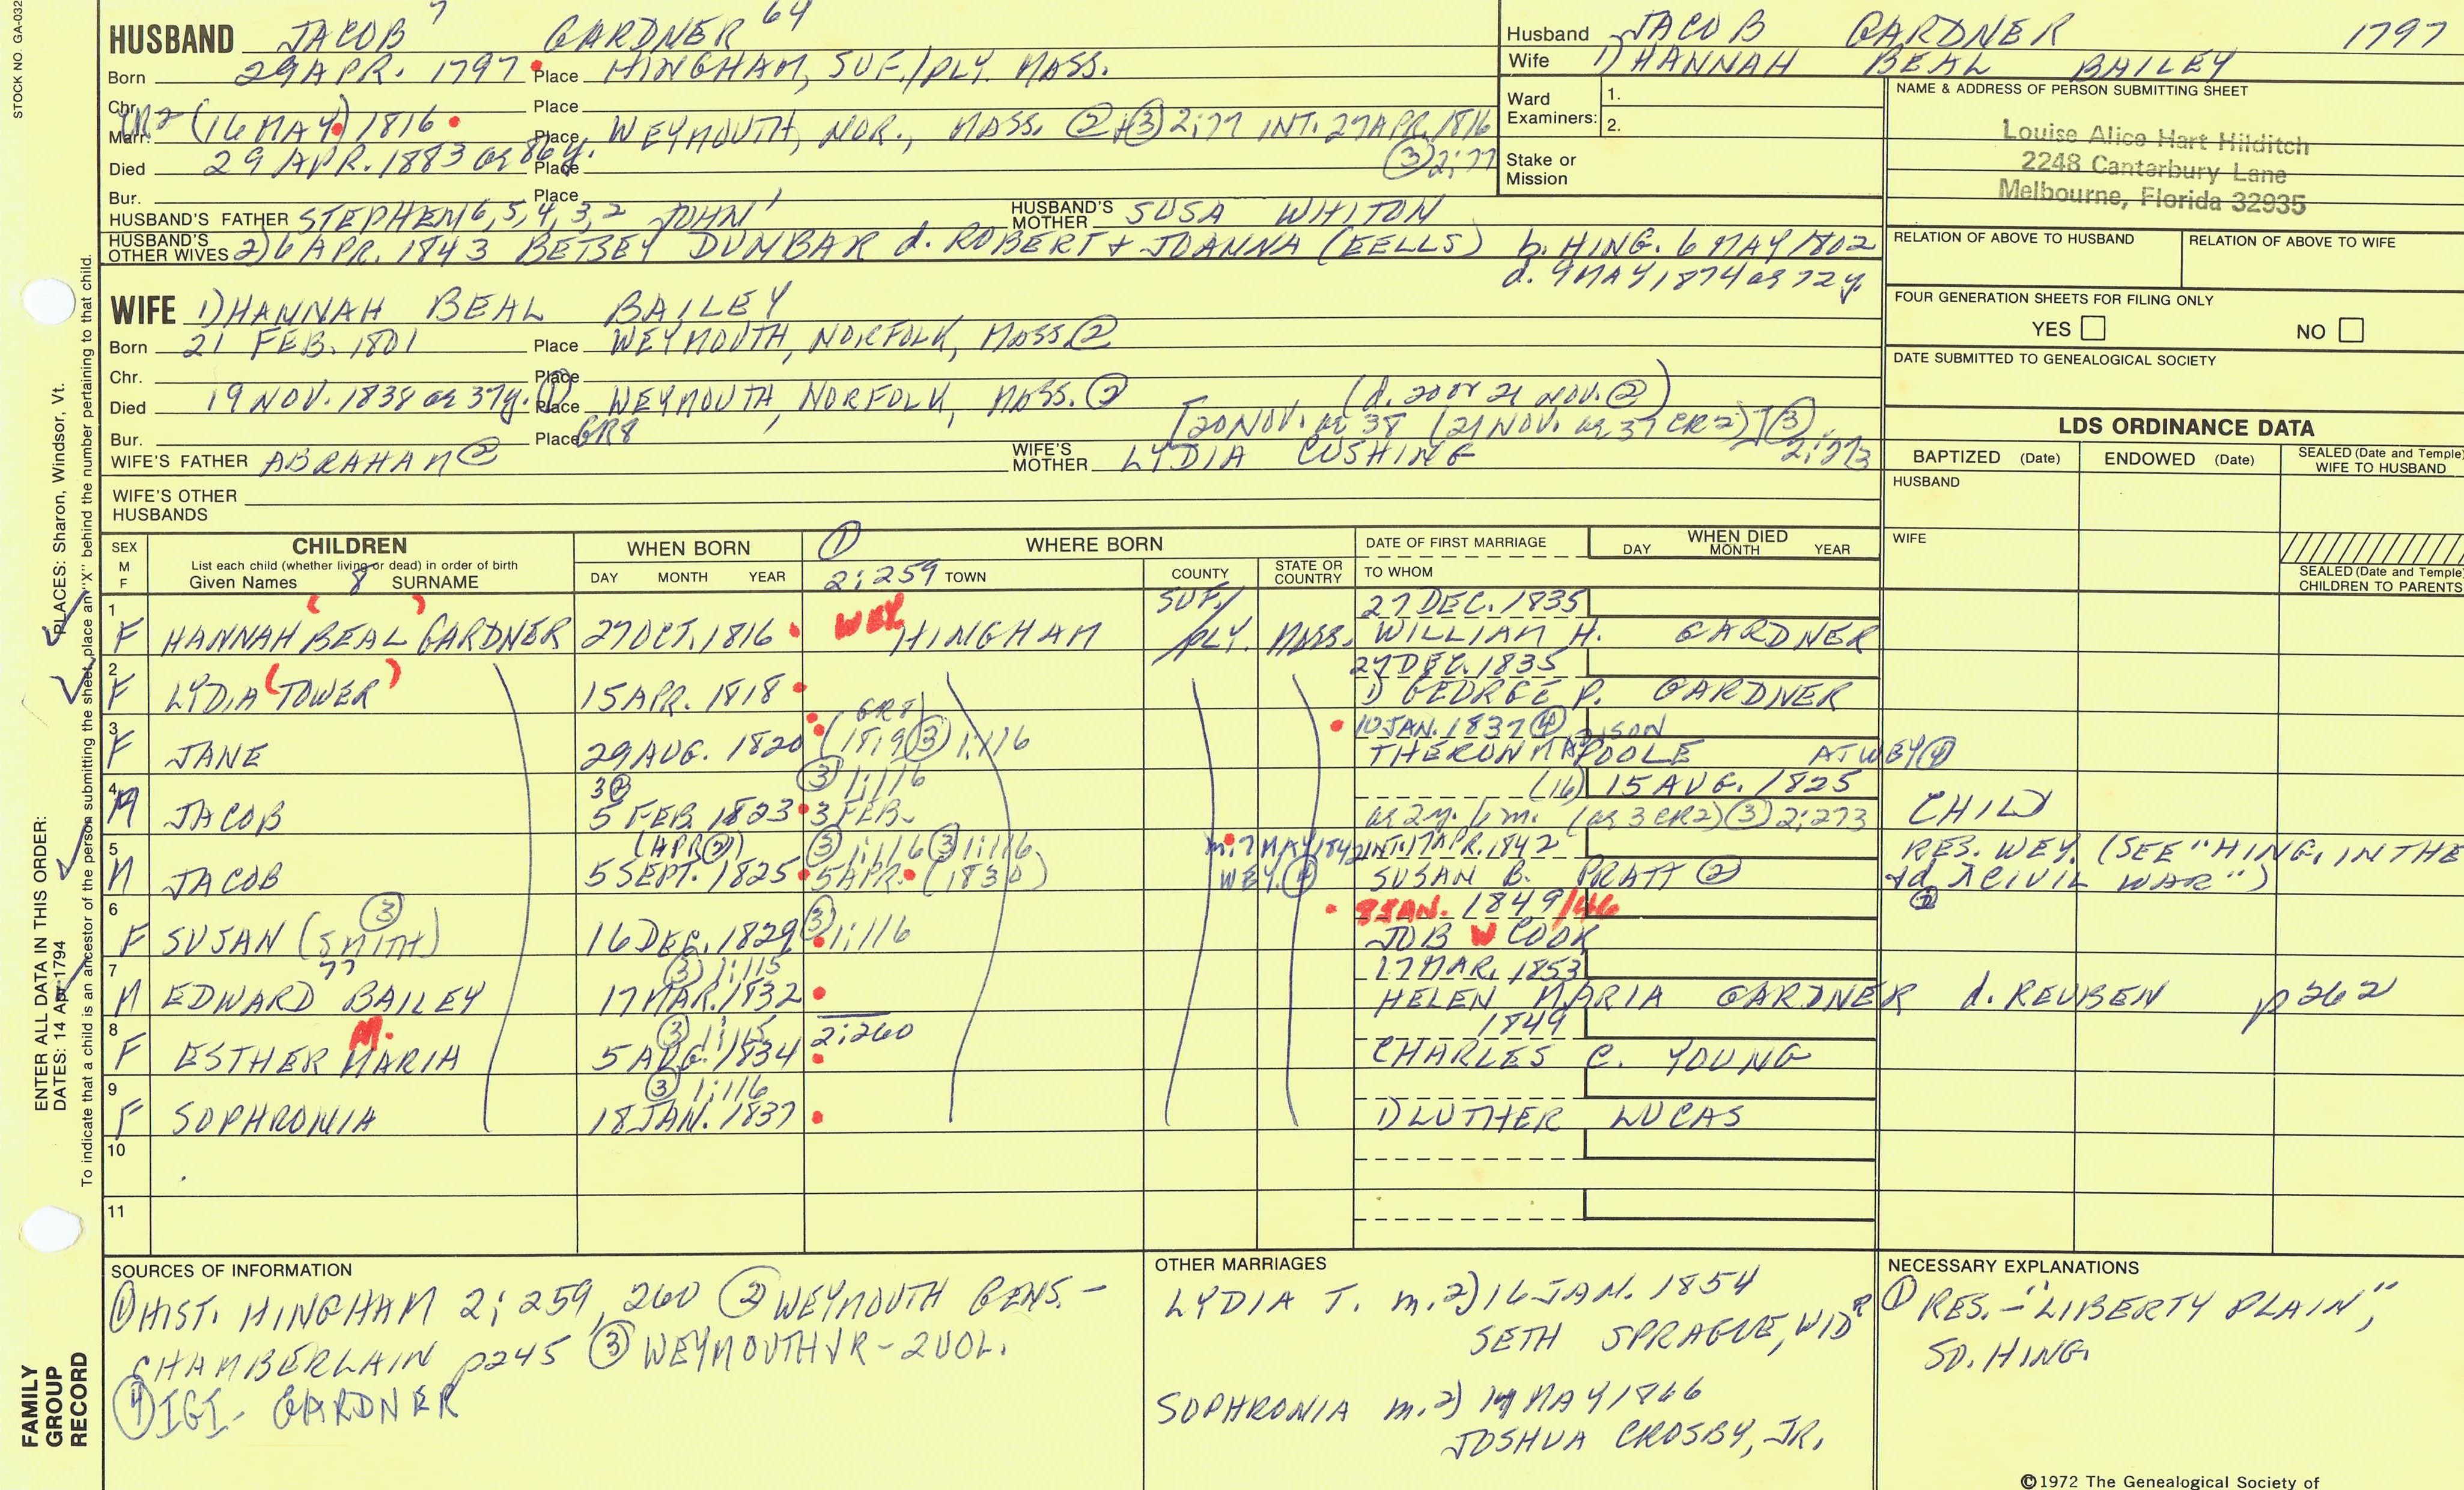 STOCK NO. GA-032
HUSBAND JACOB 7 GARDNER 64
Born 29 APR. 1797 Place HINGHAM, SUF./PLY. MASS.
Chr. Place
Marr. CR2 (16 MAY) 1816 Place WEYMOUTH, NOR., MASS. ② + ③ 2:77 INT. 27 APR. 1816
③ 2:77
Died 29 APR. 1883 ag 86y. Place
Bur. Place
HUSBAND'S FATHER STEPHEN 6,5,4,3,2 JOHN 1 HUSBAND'S MOTHER SUSA WHITON
HUSBAND'S OTHER WIVES 2) 6 APR. 1843 BETSEY DUNBAR d. ROBERT + JOANNA (EELLS) b. HING. 6 MAY 1802
d. 9 MAY 1874 ag 72y.
Husband JACOB GARDNER 1797
Wife 1) HANNAH BEAL BAILEY
Ward Examiners: 1.
2.
Stake or Mission
NAME & ADDRESS OF PERSON SUBMITTING SHEET
Louise Alice Hart Hilditch
2248 Canterbury Lane
Melbourne, Florida 32935
RELATION OF ABOVE TO HUSBAND RELATION OF ABOVE TO WIFE
FOUR GENERATION SHEETS FOR FILING ONLY
YES NO
DATE SUBMITTED TO GENEALOGICAL SOCIETY
WIFE 1) HANNAH BEAL BAILEY
Born 21 FEB. 1801 Place WEYMOUTH, NORFOLK, MASS ②
Chr. Place
Died 19 NOV. 1838 ag 37y. ① Place WEYMOUTH, NORFOLK, MASS. ② (d. 20 or 21 NOV. ②)
Bur. Place GR8 [20 NOV. ag 38 (21 NOV. ag 37 CR2)] ③ 2:273
WIFE'S FATHER ABRAHAM ② WIFE'S MOTHER LYDIA CUSHING
WIFE'S OTHER HUSBANDS
LDS ORDINANCE DATA
BAPTIZED (Date) ENDOWED (Date) SEALED (Date and Temple) WIFE TO HUSBAND
HUSBAND
WIFE
SEALED (Date and Temple) CHILDREN TO PARENTS
SEX M F CHILDREN List each child (whether living or dead) in order of birth Given Names 8 SURNAME
WHEN BORN DAY MONTH YEAR
① 2:259 WHERE BORN TOWN COUNTY STATE OR COUNTRY
DATE OF FIRST MARRIAGE TO WHOM WHEN DIED DAY MONTH YEAR
1 F HANNAH (BEAL) GARDNER 27 OCT. 1816 WEY. HINGHAM SUF./PLY. MASS. 27 DEC. 1835
WILLIAM H. GARDNER
2 F LYDIA (TOWER) 15 APR. 1818 27 DEC. 1835
1) GEORGE P. GARDNER
3 F JANE 29 AUG. 1820 (GR8) (1819 ③ 1:116 10 JAN. 1837 ④
THERON MADISON POOLE AT WEY ④
4 M JACOB 3 ② 5 FEB. 1823 ③ 1:116 3 FEB. (16) 15 AUG. 1825
ag 2y. 6m. (ag 3 CR2) ③ 2:273 CHILD
5 M JACOB (APR ②) 5 SEPT. 1825 ③ 1:116 5 APR. ③ 1:116 (1830) m. 7 MAY 1842 WEY. ④ INT. 17 APR. 1842
SUSAN B. PRATT ② RES. WEY. (SEE "HING. IN THE CIVIL WAR")
6 F SUSAN (SMITH) ③ 16 DEC. 1829 ③ 1:116 JAN. 1849/46
JOB W COOK
7 M EDWARD BAILEY 77 17 MAR. 1832 ③ 1:115 17 MAR. 1853
HELEN MARIA GARDNER d. REUBEN p262
8 F ESTHER MARIA M. 5 AUG. 1834 ③ 1:115 2:260 1849
CHARLES C. YOUNG
9 F SOPHRONIA 18 JAN. 1837 ③ 1:116
1) LUTHER LUCAS
10
11
SOURCES OF INFORMATION
① HIST. HINGHAM 2:259, 260 ② WEYMOUTH GENS. -
CHAMBERLAIN p245 ③ WEYMOUTH VR - 2 VOL.
④ IGI - GARDNER
OTHER MARRIAGES
LYDIA T. m. 2) 16 JAN. 1854
SETH SPRAGUE, WIDR
SOPHRONIA m. 2) MAY 1866
JOSHUA CROSBY, JR.
NECESSARY EXPLANATIONS
① RES. - "LIBERTY PLAIN",
SO. HING.
©1972 The Genealogical Society of
ENTER ALL DATA IN THIS ORDER:
DATES: 14 Apr 1794 PLACES: Sharon, Windsor, Vt.
To indicate that a child is an ancestor of the person submitting the sheet, place an "X" behind the number pertaining to that child.
FAMILY
GROUP
RECORD